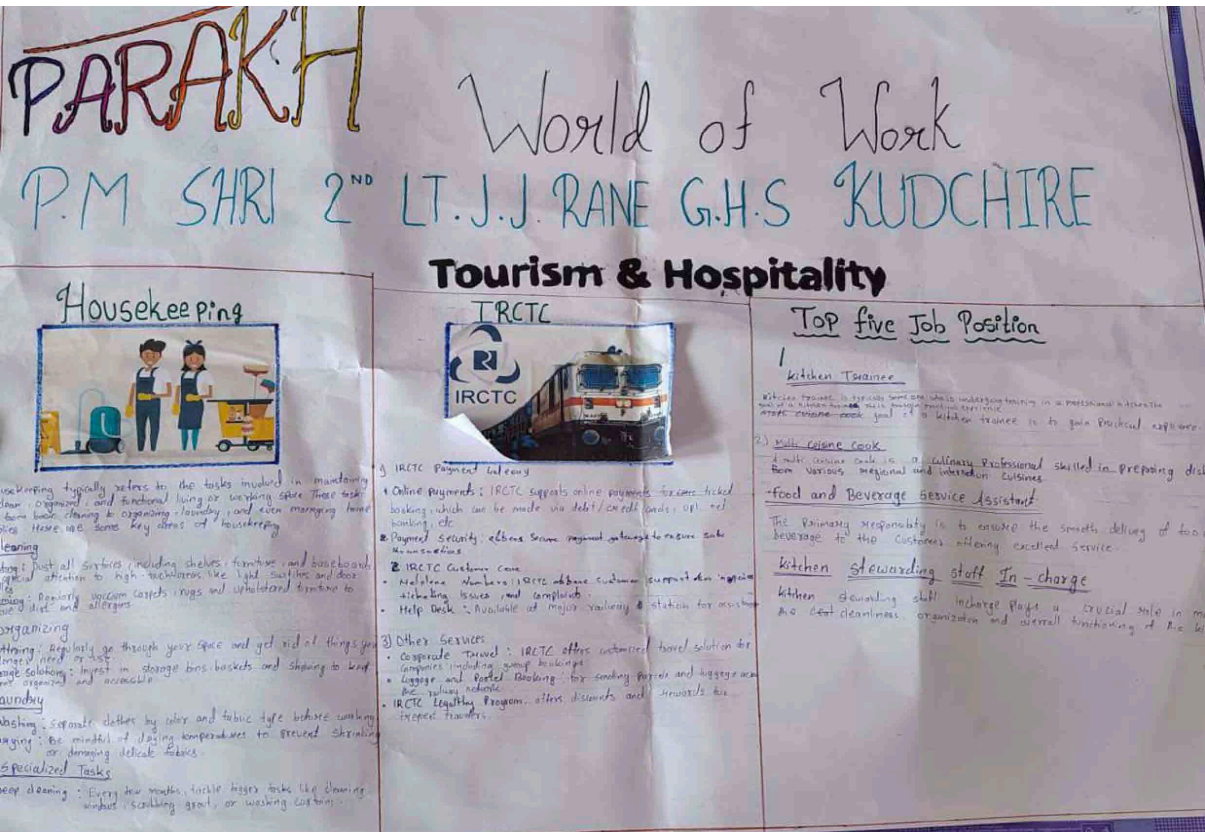 PARAKH
World of Work
P.M SHRI 2ND LT.J.J. RANE G.H.S KUDCHIRE
Tourism & Hospitality
Housekeeping
usekeeping typically refers to the tasks involved in maintaining
clean, organized, and functional living or working space These task
from basic cleaning to organizing, laundry, and even managing home
Here are some key areas of housekeeping
leaning
Dust all surfaces, including shelves, furniture, and baseboards
special attention to high-touch areas like light switches and door
Regularly vaccum carpets, rugs and upholstered furniture to
dirt and allergens
organizing
Regularly go through your space and get rid of things you
longer need or use.
solutions: Invest in storage bins, baskets and shelving to keep
organized and accessible.
aundry
Washing: Separate clothes by color and fabric type before washing
Be mindful of drying temperatures to prevent shrinking
or damaging delicate fabrics.
specialized Tasks
eep cleaning: Every few months, tackle bigger tasks like cleaning
windows, scrubbing grout, or washing curtains.
IRCTC
IRCTC
1) IRCTC Payment Gateway
Online payments: IRCTC supports online payments for ticket
booking, which can be made via debit/credit cards, upi, net
banking, etc
Payment security: secure payment gateways to ensure safe
transactions
2 IRCTC Customer Care
Helpline Numbers: IRCTC customer support
ticketing issues, and complaints.
• Help Desk: Available at major railway station for
3) Other Services
• Corporate Travel: IRCTC offers customized travel solution for
companies including group bookings
• Luggage and Booking: for sending parcels and luggage
the railway network
• IRCTC Program: offers discounts and rewards for
travelers.
Top five Job Position
1
Kitchen Trainee
Kitchen trainee is typically someone who is undergoing training in a professional kitchen The
goal of a kitchen trainee is to gain practical experience.
2) Multi Cuisine Cook
A multi cuisine cook is a culinary Professional skilled in preparing dish
from various regional and cuisines
food and Beverage Service Assistant.
The Primary is to ensure the smooth delivery of
beverage to the customer offering excellent service.
kitchen stewarding staff In-charge
kitchen stewarding staff incharge plays a crucial role in
the cleanliness, organization and overall functioning of the